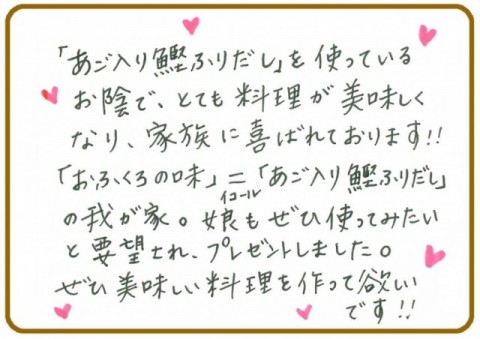 「あご入り鰹ふりだし」を使っている
お陰で、とても料理が美味しく
なり、家族に喜ばれております!!
「おふくろの味」=「あご入り鰹ふりだし」
イコール
の我が家。娘もぜひ使ってみたい
と要望され、プレゼントしました。
ぜひ美味しい料理を作って欲しい
です!!